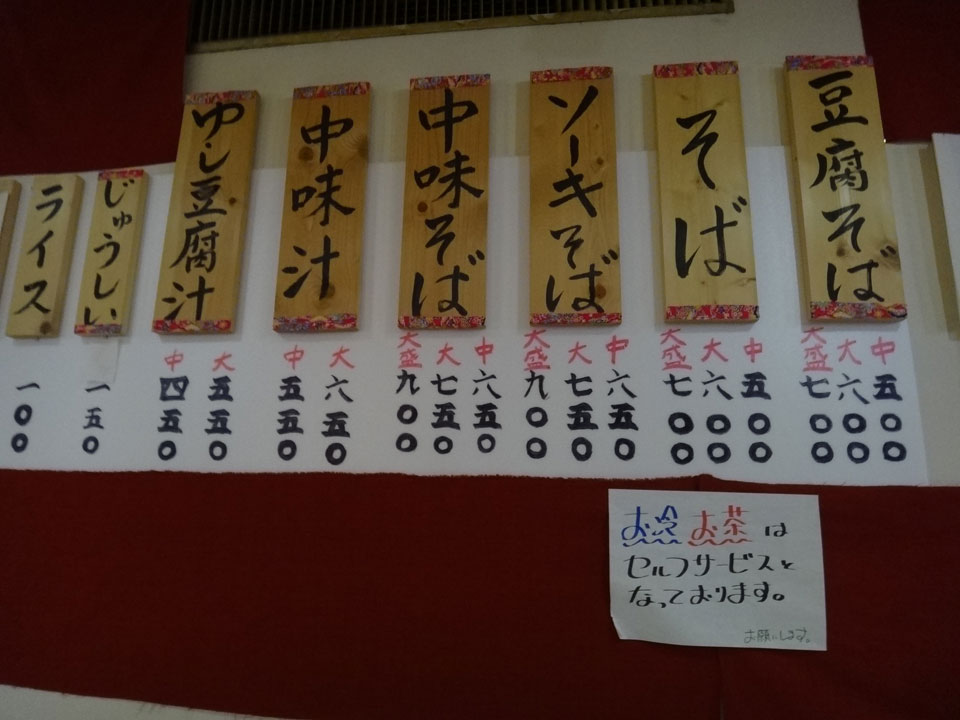 豆腐そば
中 五〇〇
大 六〇〇
大盛 七〇〇
そば
中 五〇〇
大 六〇〇
大盛 七〇〇
ソーキそば
中 六五〇
大 七五〇
大盛 九〇〇
中味そば
中 六五〇
大 七五〇
大盛 九〇〇
中味汁
大 六五〇
中 五五〇
ゆし豆腐汁
大 五五〇
中 四五〇
じゅうしぃ
一五〇
ライス
一〇〇
お冷 お茶 は
セルフサービスと
なっております。
お願いします。